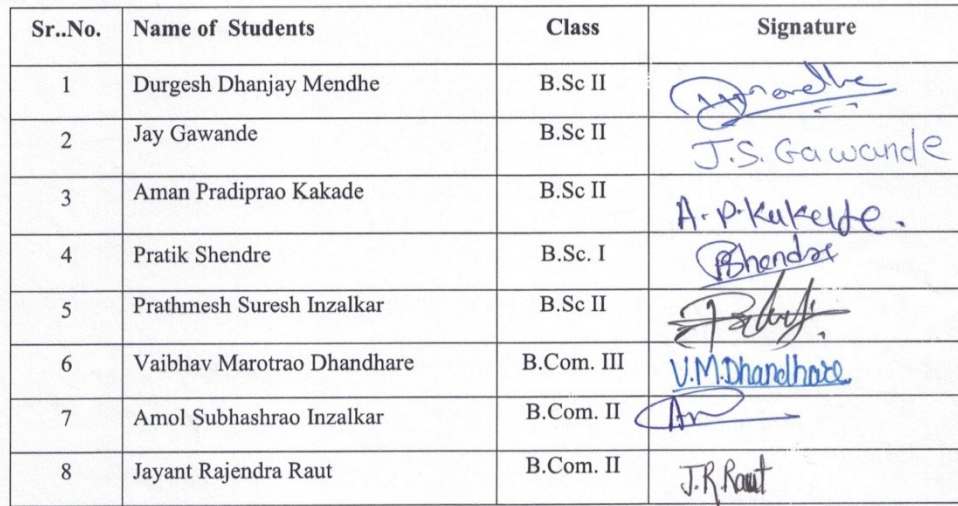 Sr..No. Name of Students Class Signature
1 Durgesh Dhanjay Mendhe B.Sc II
2 Jay Gawande B.Sc II J.S. Gawande
3 Aman Pradiprao Kakade B.Sc II A.P.Kakade.
4 Pratik Shendre B.Sc. I PShendre
5 Prathmesh Suresh Inzalkar B.Sc II
6 Vaibhav Marotrao Dhandhare B.Com. III V.M.Dhandhare
7 Amol Subhashrao Inzalkar B.Com. II
8 Jayant Rajendra Raut B.Com. II J.R.Raut